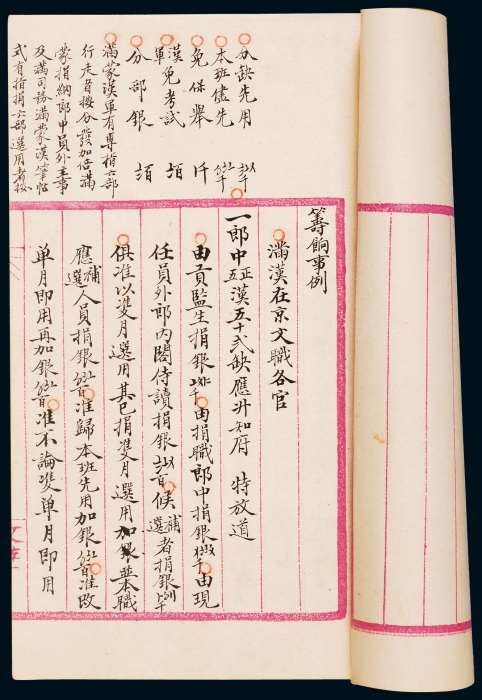 分缺先用
本班儘先
免保舉 仟
漢軍免考試 𠦜
分部銀
滿蒙漢軍有專指六部
行走者按分發加倍滿
蒙指納郎中員外主事
及滿司務滿蒙漢筆帖
式有指捐六部選用者按
籌餉事例
滿漢在京文職各官
一郎中正五漢五十弍缺應升知府 特放道
由貢監生捐銀 由捐職郎中捐銀 由現
任員外郎內閣侍讀捐銀 候補選者捐銀
俱准以雙月選用其已捐雙月選用加銀並本職
應補選人員捐銀 准歸本班先用加銀 准改
單月即用再加銀 准不論雙單月即用